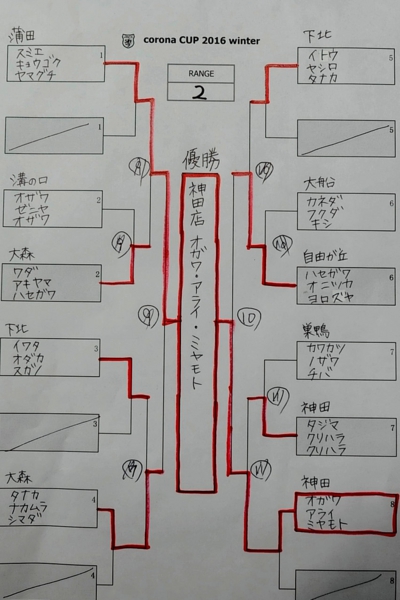 corona CUP 2016 winter
RANGE
2
優勝
神田店 オガワ・アライ・ミヤモト
蒲田
スミエ
キョウゴク
ヤマグチ
1
1
溝の口
オザワ
ゼニヤ
オザワ
2
大森
ワダ
アキヤマ
ハセガワ
2
下北
イワタ
オダカ
スガノ
3
3
大森
タナカ
ナカムラ
シマダ
4
4
9
下北
イトウ
ヤシロ
タナカ
5
5
大船
カネダ
フクダ
キシ
6
自由が丘
ハセガワ
オニツカ
ヨロズヤ
6
巣鴨
カワカツ
ノザワ
チバ
7
神田
タジマ
クリハラ
クリハラ
7
神田
オガワ
アライ
ミヤモト
8
8
10
11
11